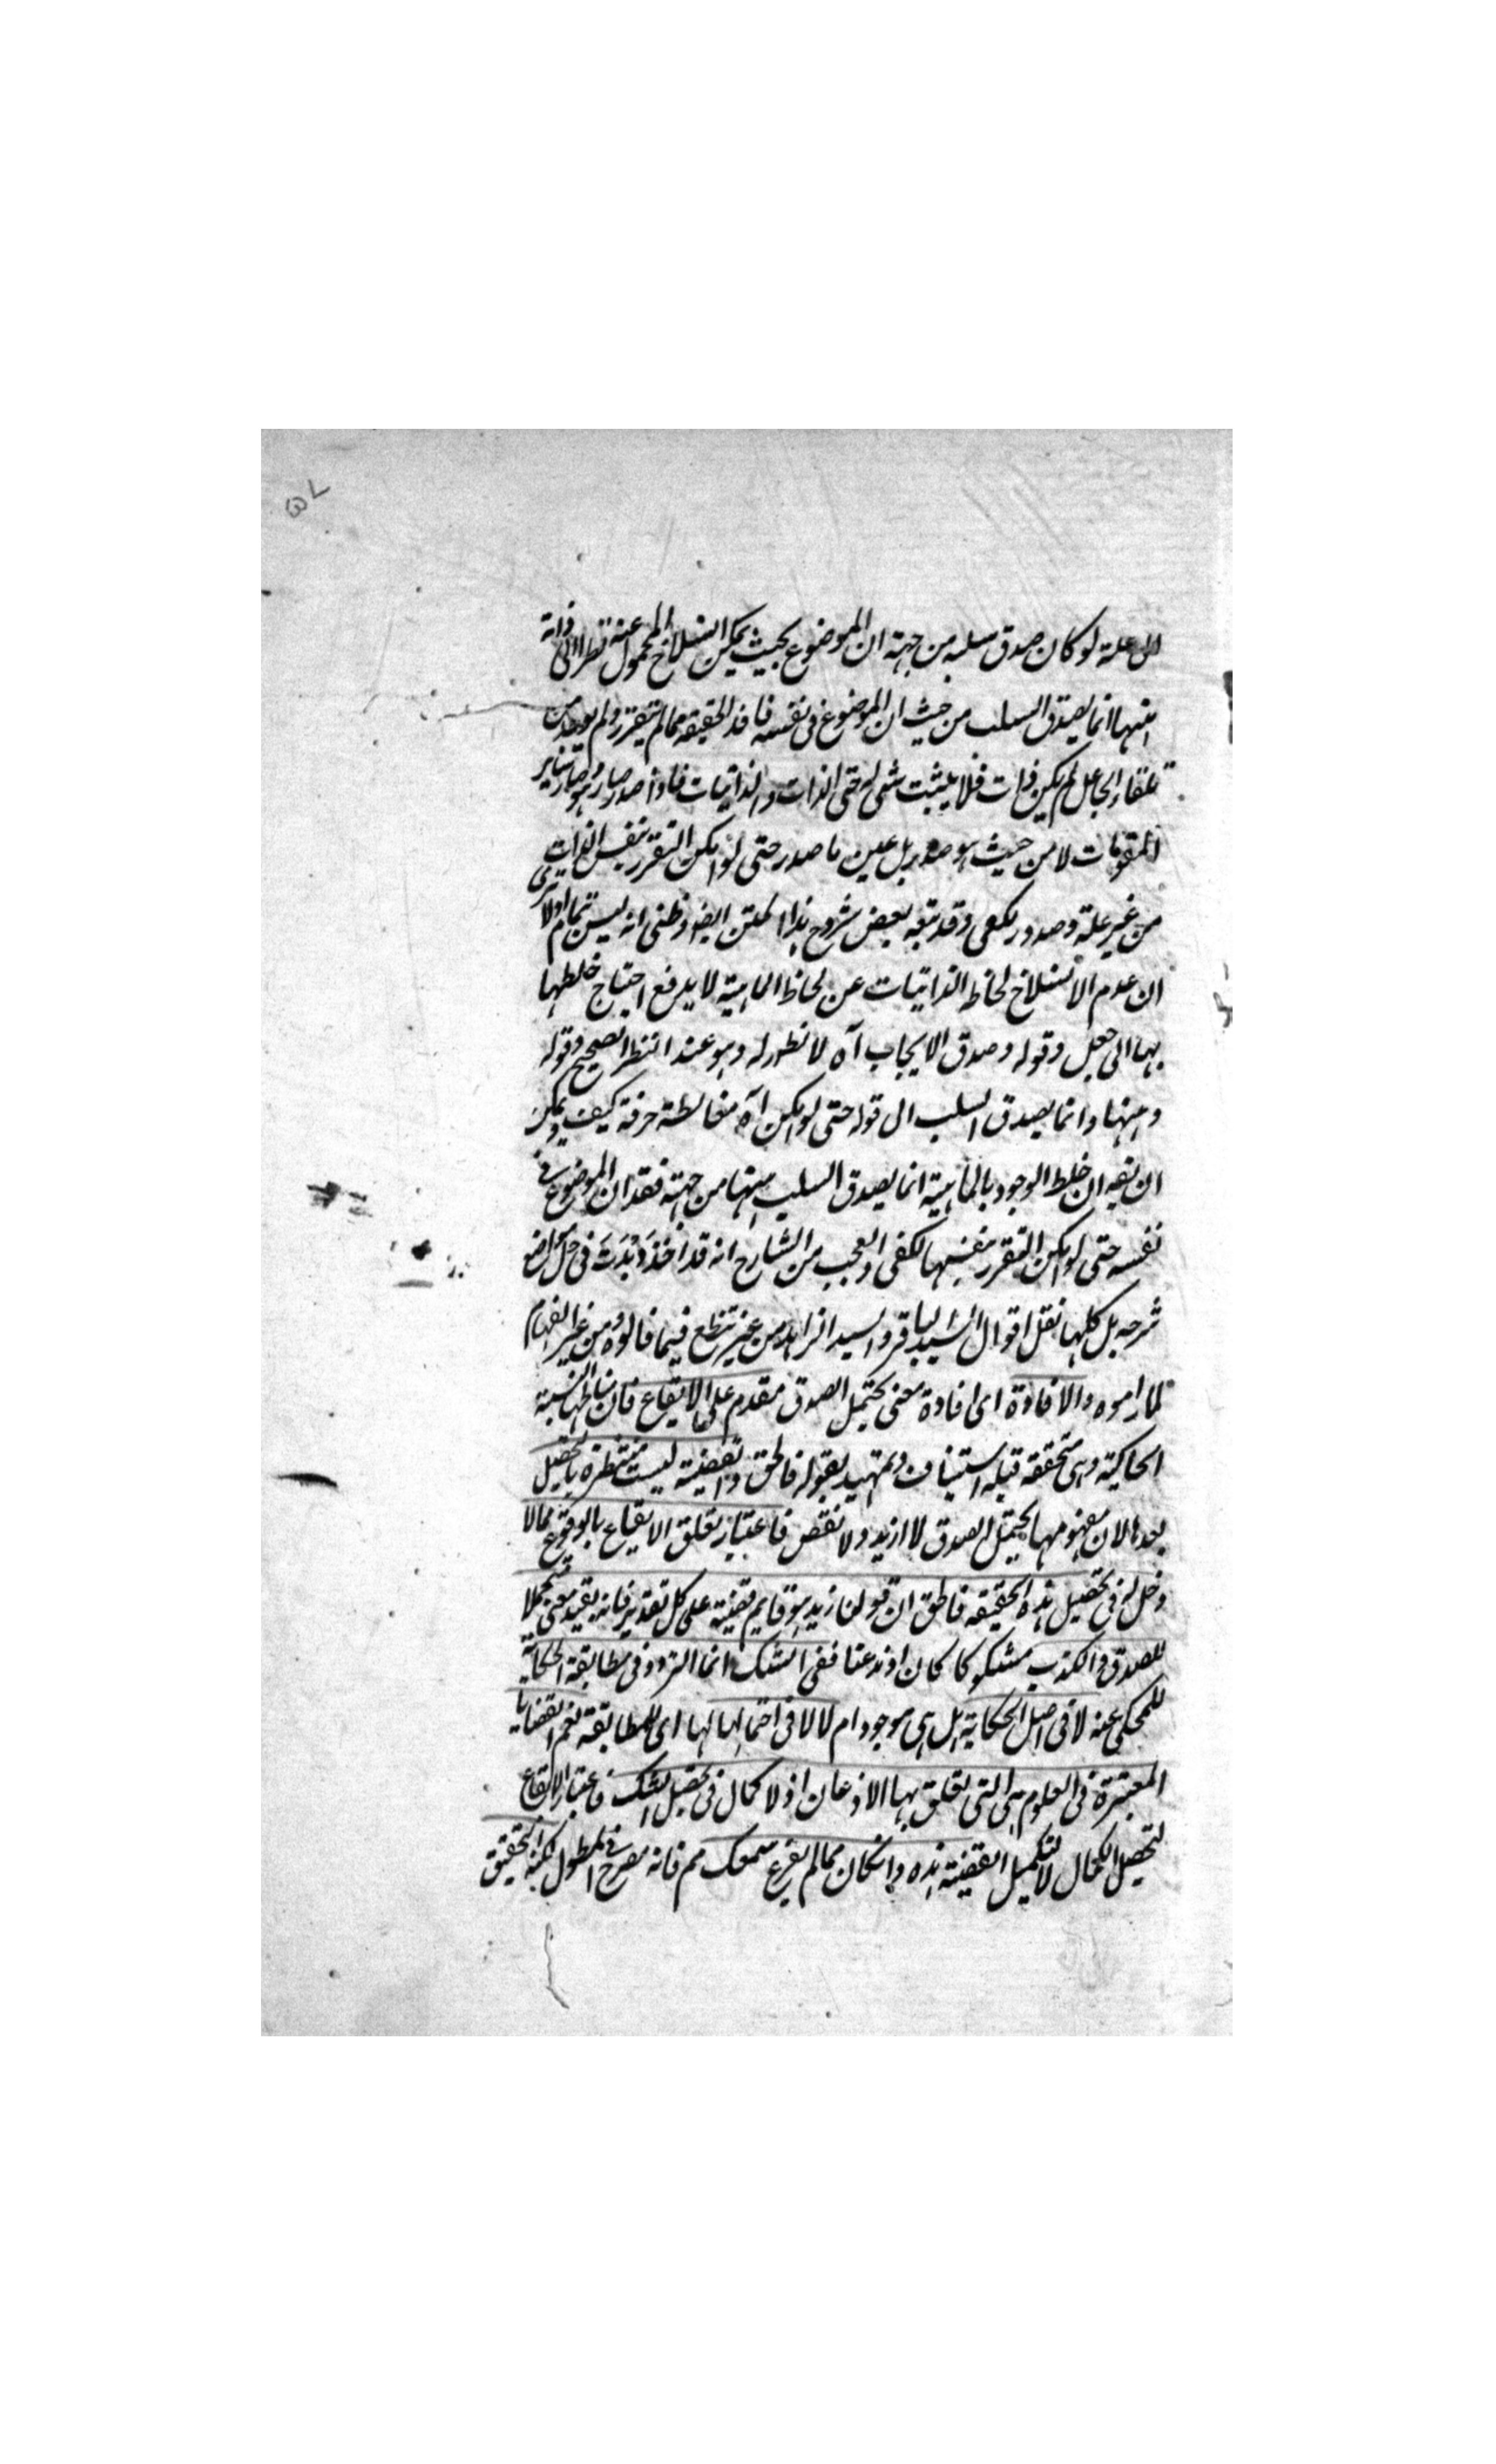 الى علة لو كان صدق سلبه من جهة ان الموضوع بحيث يمكن انسلاخ المحمول عنه نظرا الى ذاته
منها انما يصدق السلب من حيث ان الموضوع فى نفسه فاقد الحقيقه فما لم يتقرر ولم يوجد من
تلقاء الجاعل لم يكن ذات فلا يثبت شى له حتى الذات والذاتيات فاذا صدر صار هو وصار سائر
المقومات لا من حيث هو صدر بل عين ما صدر حتى لو امكن التقرر بنفس الذات
من غير علة وصدور يكفى وقد تبعه بعض شروح هذا المتن ايضا وظنى انه ليس بتمام اولا ترى
ان عدم الانسلاخ لحاظ الذاتيات عن لحاظ الماهية لا يدفع احتياج خلطها
بها الى جعل وقوله وصدق الايجاب آه لا نظور له وهو عند النظر الصحيح وقوله
ومنها وانما يصدق السلب الى قوله حتى لو امكن آه مغالطة صرفة كيف ويمكن
ان يقه ان خلط الوجود بالماهية انما يصدق السلب منها من جهة فقدان الموضوع فى
نفسه حتى لو امكن التقرر بنفسها لكفى والعجب من الشارح انه قد اخذ دبدت فى حل مواضع
شرحه بل كلها نقل اقوال السيد الباقر والسيد الزاهد من غير تنطع فيما قالوه ومن غير انفهام
لما راموه والافادة اى افادة معنى يحتمل الصدق مقدم على الايقاع فان مناطها النسبة
الحاكية وهى متحققه قبله استيناف وتمهيد بقوله فالحق والقضية ليست منتظرة بالتحصيل
بعدها لان مفهومها يحتمل الصدق لا ازيد ولا نقص فاعتبار تعلق الايقاع بالوقوع مما لا
دخل له فى تحصيل هذه الحقيقه فالحق ان قولنا زيد هو قايم قضية على كل تقدير فانه يفيد معنى محتملا
للصدق والكذب مشكوكا كان او مذعنا ففى الشك انما التردد فى مطابقة الحكاية
للمحكى عنه لا فى اصل الحكاية هل هى موجود ام لا لا فى احتمالها لها اى للمطابقة نعم القضايا
المعتبرة فى العلوم هى التى تعلق بها الاذعان اذ لا كمال فى تحصيل الشك فاعتبار الايقاع
لتحصيل الكمال لا لتكميل القضية هذه وانكان مما لم يقرع سمعك مم فانه مصرح فى المطول لكنه التحقيق